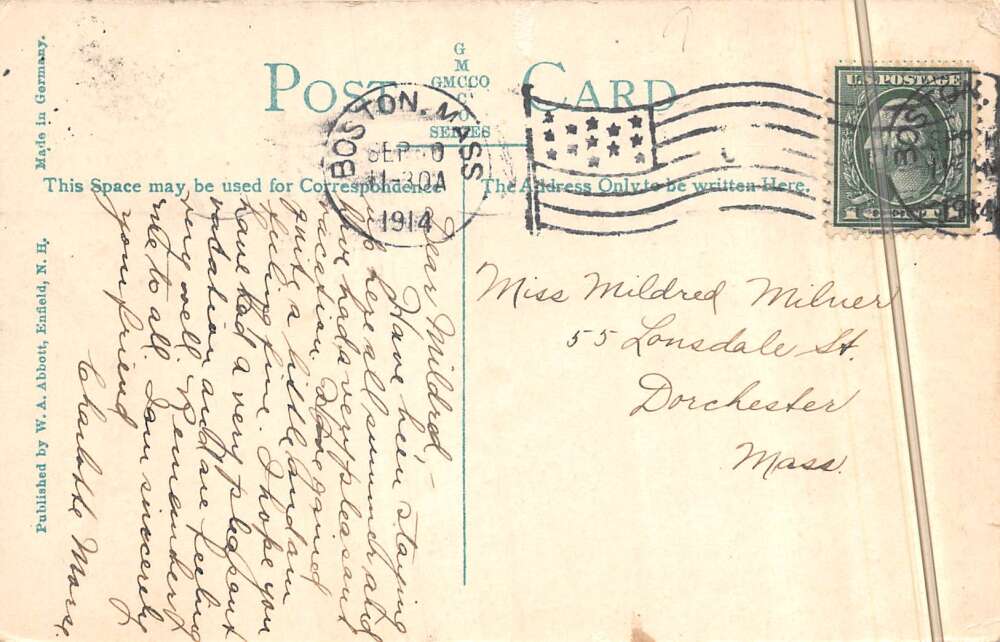 POST CARD
G
M
GMCCO
C
O
SERIES
BOSTON, MASS
SEP 0
11-30A
1914
U.S. POSTAGE
1914
This Space may be used for Correspondence
The Address Only to be written Here.
Made in Germany.
Published by W. A. Abbott, Enfield, N. H.
Dear Mildred,-
Have been staying
up here all summer and
have had a very pleasant
vacation. Have gained
quite a little and am
feeling fine. I hope you
have had a very pleasant
vacation and are feeling
very well. Remember
me to all. I am sincerely
your friend
Charlotte Morse.
Miss Mildred Milner
55 Lonsdale St.
Dorchester
Mass.